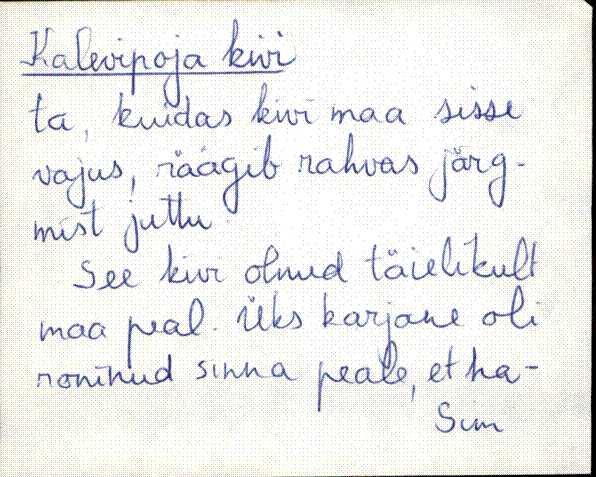 Kalevipoja kivi
ta, kuidas kivi maa sisse
vajus, räägib rahvas järg-
mist juttu.
See kivi olnud täielikult
maa peal. Üks karjane oli
roninud sinna peale, et ha-
Sim